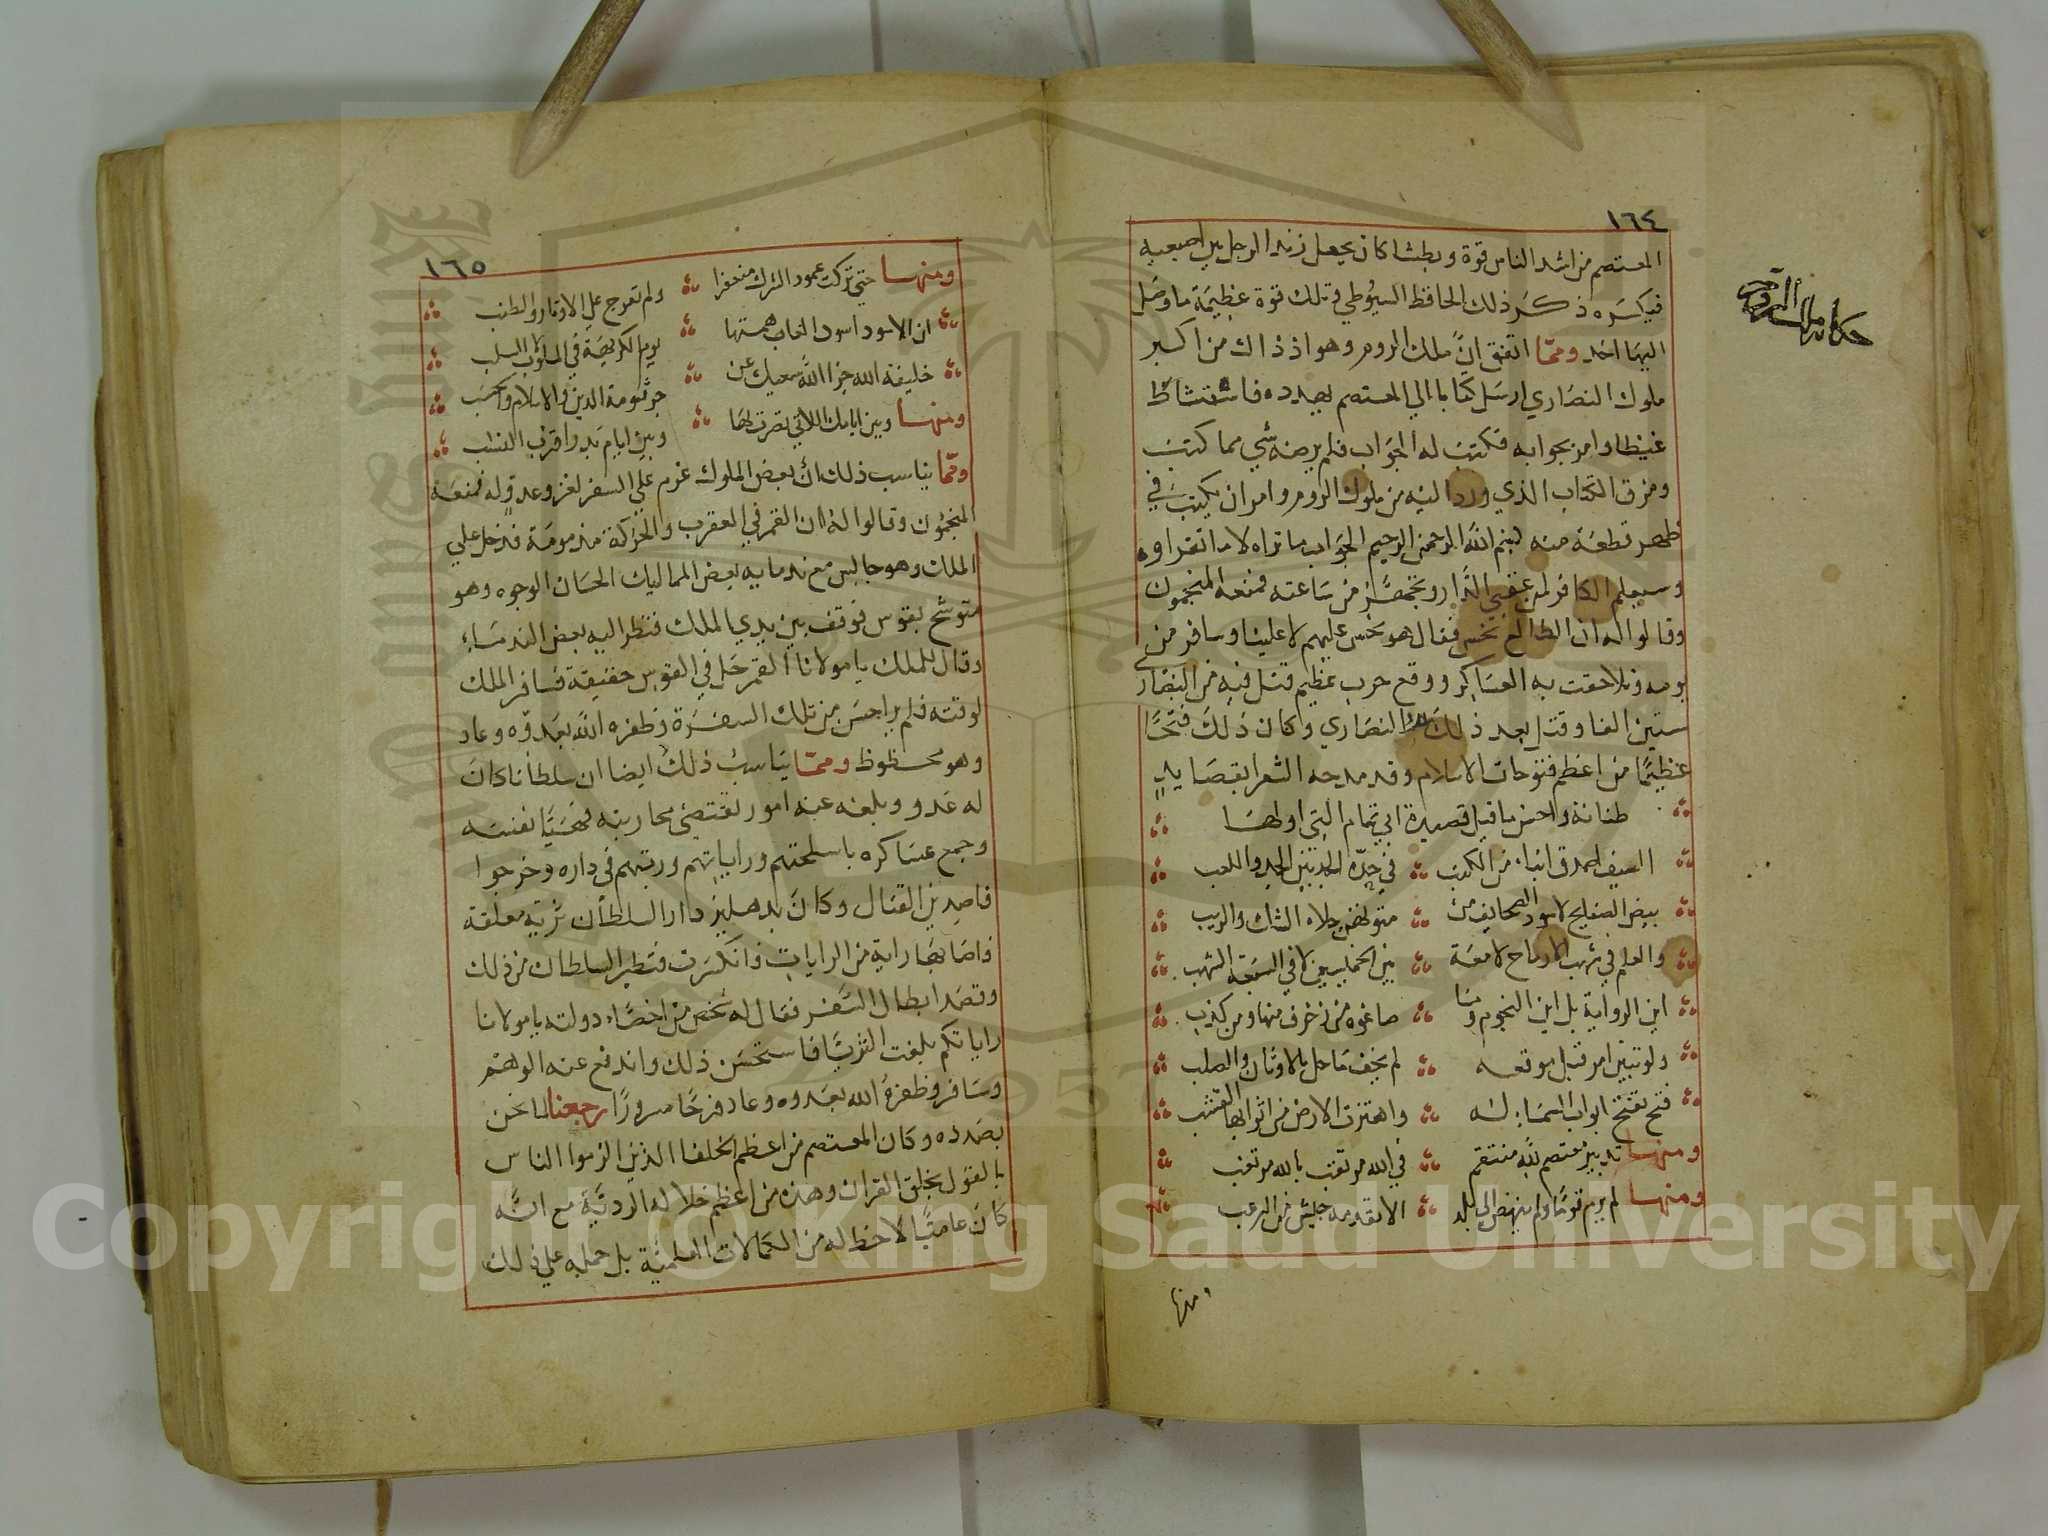 ١٦٤
المعتصم من اشد الناس قوة وبطشا كان يجعل زند الرجل بين اصبعيه
فيكسره ذكر ذلك الحافظ السيوطي وتلك قوة عظيمة ما وصل
اليها احد ومما اتفق ان ملك الروم وهو اذ ذاك من اكبر
ملوك النصارى ارسل كتابا الى المعتصم يهدده فاستشاط
غيظا وامر بجوابه فكتب له الجواب فلم يرضه شي مما كتب
ومزق الكتاب الذي ورد اليه من ملوك الروم وامر ان يكتب في
ظهر قطعة منه بسم الله الرحمن الرحيم الجواب ما تراه لا ما تقراوه
وسيعلم الكافر لمن عقبى الدار وتجهز من ساعته فمنعه المنجمون
وقالوا له ان الطالع نحس فقال هو نحس عليهم لا علينا وسافر من
يومه وتلاحقت به العساكر ووقع حرب عظيم قتل فيه من النصارى
ستين الفا وقتل بعد ذلك النصارى وكان ذلك فتحا
عظيما من اعظم فتوحات الاسلام وقد مدحه الشعرا بقصايد
طنانة واحسن ما قيل قصيدة ابي تمام التي اولها
السيف اصدق انباء من الكتب في حده الحد بين الجد واللعب
بيض الصفايح لاسود الصحايف في متونهن جلاء الشك والريب
والعلم في شهب الارماح لامعة بين الخميسين لا في السبعة الشهب
اين الرواية بل اين النجوم وما صاغوه من زخرف منها ومن كذب
ولو تبين امر قبل موقعه لم يخف ما حل بالاوثان والصلب
فتح تفتح ابواب السماء له واهتزت الارض في اثوابها القشب
ومنها تدبير معتصم لله منتقم في الله مرتقب بالله مرتغب
ومنها لم يرم قوما ولم ينهض الى بلد الا تقدمه جيش من الرعب
ومنها
حكاية ملك الروم
١٦٥
ومنها حتى تركت عمود الشرك منعفرا ولم تعرج على الاوتار والطنب
ان الاسود اسود الغاب همتها يوم الكريهة في المسلوب لا السلب
خليفة الله جزا الله سعيك عن جرثومة الدين والاسلام والحسب
ومنها وبين ايامك اللاتي نصرت بها وبين ايام بدر اقرب النسب
ومما يناسب ذلك ان بعض الملوك عزم على السفر لغزو عدو له فمنعه
المنجمون وقالوا له ان القمر في العقرب والحركة مذمومة فدخل على
الملك وهو جالس مع ندمايه بعض المماليك الحسان الوجوه وهو
متوشح بقوس فوقف بين يدي الملك فنظر اليه بعض الندماء
وقال للملك يا مولانا القمر حل في القوس حقيقة فسافر الملك
لوقته فلم ير احسن من تلك السفرة وظفره الله بعدوه وعاد
وهو محظوظ ومما يناسب ذلك ايضا ان سلطانا كان
له عدو وبلغه عنه امور تقتضي محاربته فتهيا بنفسه
وجمع عساكره باسلحتهم وراياتهم ورتبهم في داره وخرجوا
قاصدين القتال وكان بدهليز دار السلطان ثرية معلقة
فاصابها راية من الرايات فانكسرت فتطير السلطان من ذلك
وقصد ابطال السفر فقال له شخص من اخصاء دولته يا مولانا
راياتكم بلغت الثريا فاستحسن ذلك واندفع عنه الوهم
وسافر وظفره الله بعدوه وعاد فرحا مسرورا رجعنا لما نحن
بصدده وكان المعتصم من اعظم الخلفا الذين الزموا الناس
بالقول بخلق القران وهذه من اعظم خلاله الردية مع انه
كان عاميا لا حظ له من الكمالات العلمية بل حمله على ذلك
Copyright © King Saud University